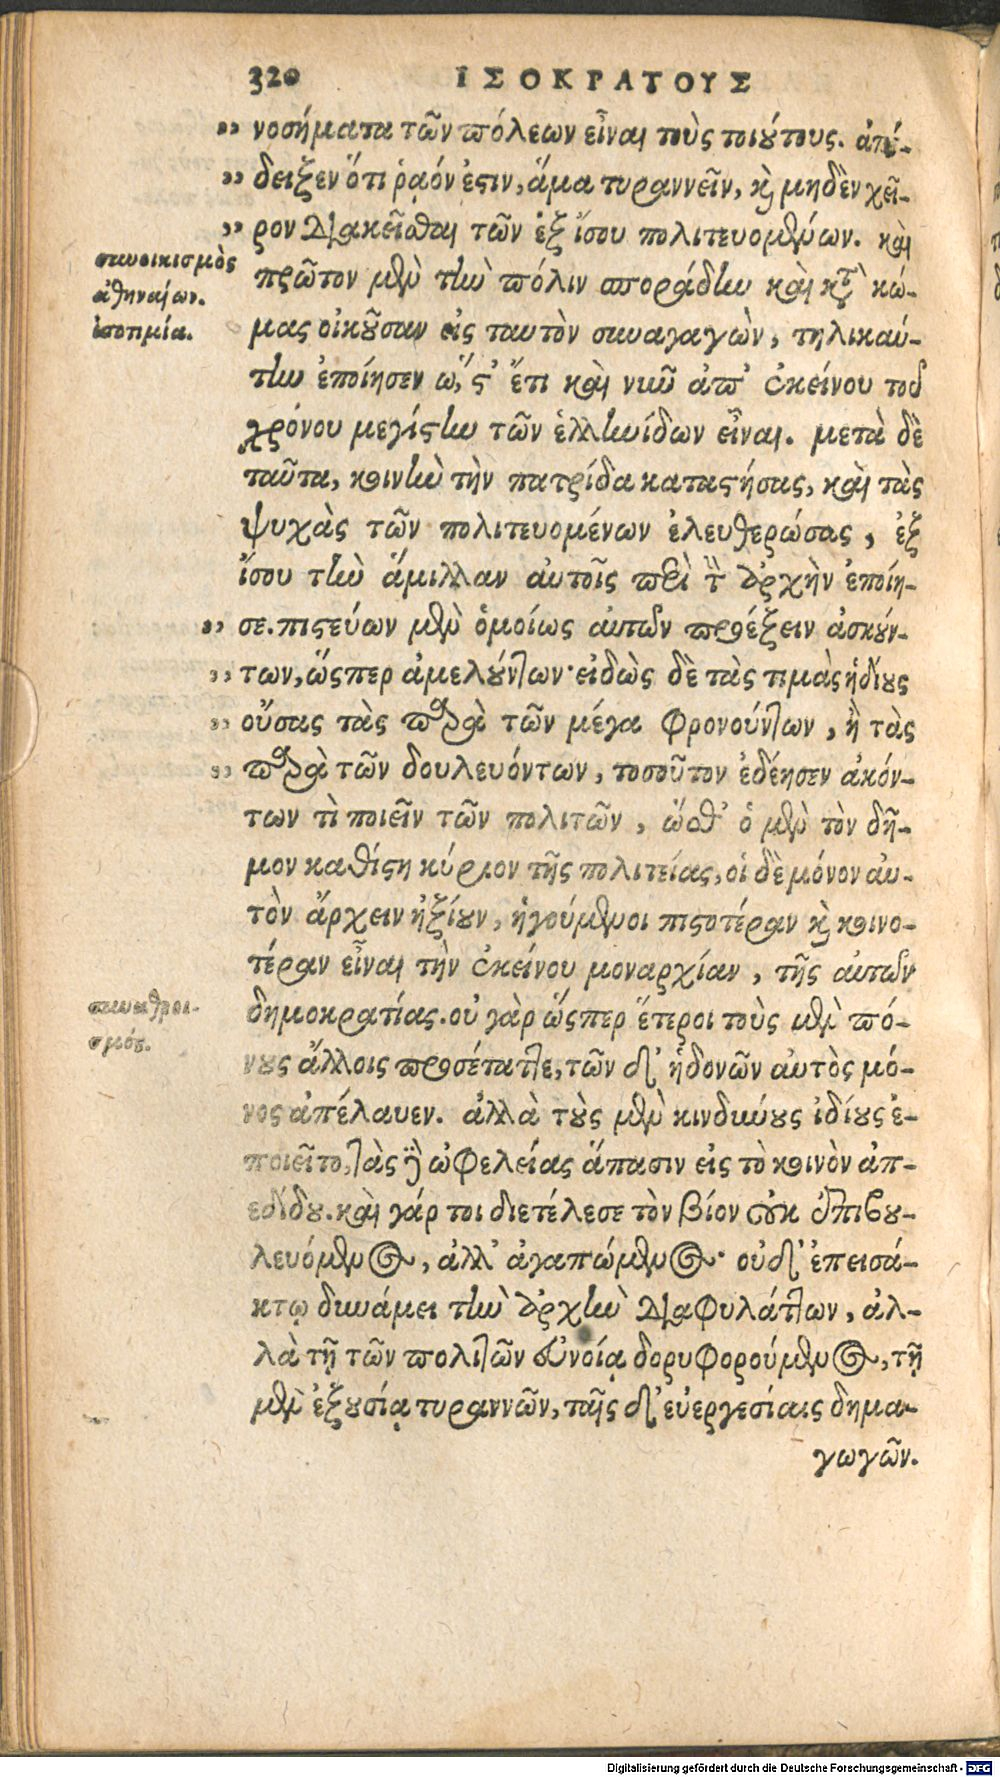 320 ΙΣΟΚΡΑΤΟΥΣ
,, νοσήματα τῶν πόλεων εἶναι τοὺς τοιούτους. ἀπέ-
,, δειξεν ὅτι ῥᾳόν ἐστιν, ἅμα τυραννεῖν, καὶ μηδὲν χεῖ-
,, ρον διακεῖσθαι τῶν ἐξ ἴσου πολιτευομένων. καὶ
συνοικισμὸς
ἀθηναίων.
ἰσοτιμία.
πρῶτον μὲν τὴν πόλιν σποράδην καὶ κατὰ κώ-
μας οἰκοῦσαν εἰς ταυτὸν συναγαγὼν, τηλικαύ-
την ἐποίησεν ὥστ' ἔτι καὶ νῦν ἀπ' ἐκείνου τοῦ
χρόνου μεγίστην τῶν ἑλληνίδων εἶναι. μετὰ δὲ
ταῦτα, κοινὴν τὴν πατρίδα καταστήσας, καὶ τὰς
ψυχὰς τῶν πολιτευομένων ἐλευθερώσας, ἐξ
ἴσου τὴν ἅμιλλαν αὐτοῖς περὶ τ̃ ἀρχὴν ἐποίη-
,, σε. πιστεύων μὲν ὁμοίως αὐτῶν προέξειν ἀσκούν-
,, των, ὥσπερ ἀμελούντων· εἰδὼς δὲ τὰς τιμὰς ἡδίους
,, οὔσας τὰς παρὰ τῶν μέγα φρονούντων, ἢ τὰς
,, παρὰ τῶν δουλευόντων, τοσοῦτον ἐδέησεν ἀκόν-
των τὶ ποιεῖν τῶν πολιτῶν, ὥσθ' ὁ μὲν τὸν δῆ-
μον καθίστη κύριον τῆς πολιτείας, οἱ δὲ μόνον αὐ-
τὸν ἄρχειν ἠξίουν, ἡγούμενοι πιστοτέραν καὶ κοινο-
τέραν εἶναι τὴν ἐκείνου μοναρχίαν, τῆς αὐτῶν
συναθροι-
σμός.
δημοκρατίας. οὐ γὰρ ὥσπερ ἕτεροι τοὺς μὲν πό-
νους ἄλλοις προσέταττε, τῶν δ' ἡδονῶν αὐτὸς μό-
νος ἀπέλαυεν. ἀλλὰ τοὺς μὲν κινδύνους ἰδίους ἐ-
ποιεῖτο, τὰς δὲ ὠφελείας ἅπασιν εἰς τὸ κοινὸν ἀπ-
εδίδου. καὶ γάρ τοι διετέλεσε τὸν βίον οὐκ ἐπιβου-
λευόμενος, ἀλλ' ἀγαπώμενος· οὐδ' ἐπεισά-
κτῳ δυνάμει τὴν ἀρχὴν διαφυλάττων, ἀλ-
λὰ τῇ τῶν πολιτῶν εὐνοίᾳ δορυφορούμενος, τῇ
μὲν ἐξουσίᾳ τυραννῶν, ταῖς δ' εὐεργεσίαις δημα-
γωγῶν.
Digitalisierung gefördert durch die Deutsche Forschungsgemeinschaft - DFG